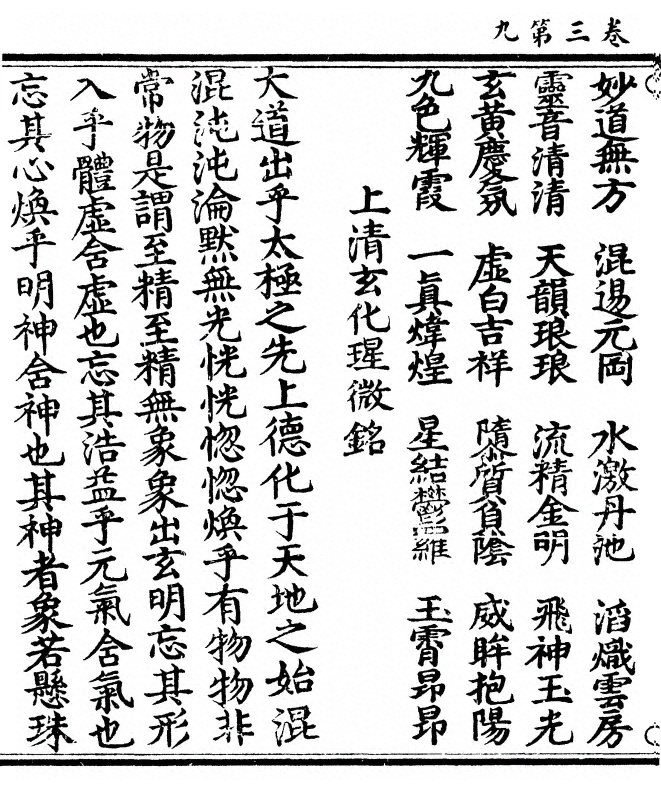 卷三第九
妙道無方 混逷元岡 水激丹池 滔熾雲房
靈音清清 天韻琅琅 流精金明 飛神玉光
玄黃慶氛 虛白吉祥 質負陰 威眸抱陽
九色輝霞 一真煒煌 星結鬱維 玉霄昂昂
上清玄化瑆微銘
大道出乎太極之先上德化于天地之始混
混沌沌淪黙無光恍恍惚惚煥乎有物物非
常物是謂至精至精無象象出玄明忘其形
入乎體虛舍虛也忘其浩益乎元氣舍氣也
忘其心煥乎明神舍神也其神者象若懸珠